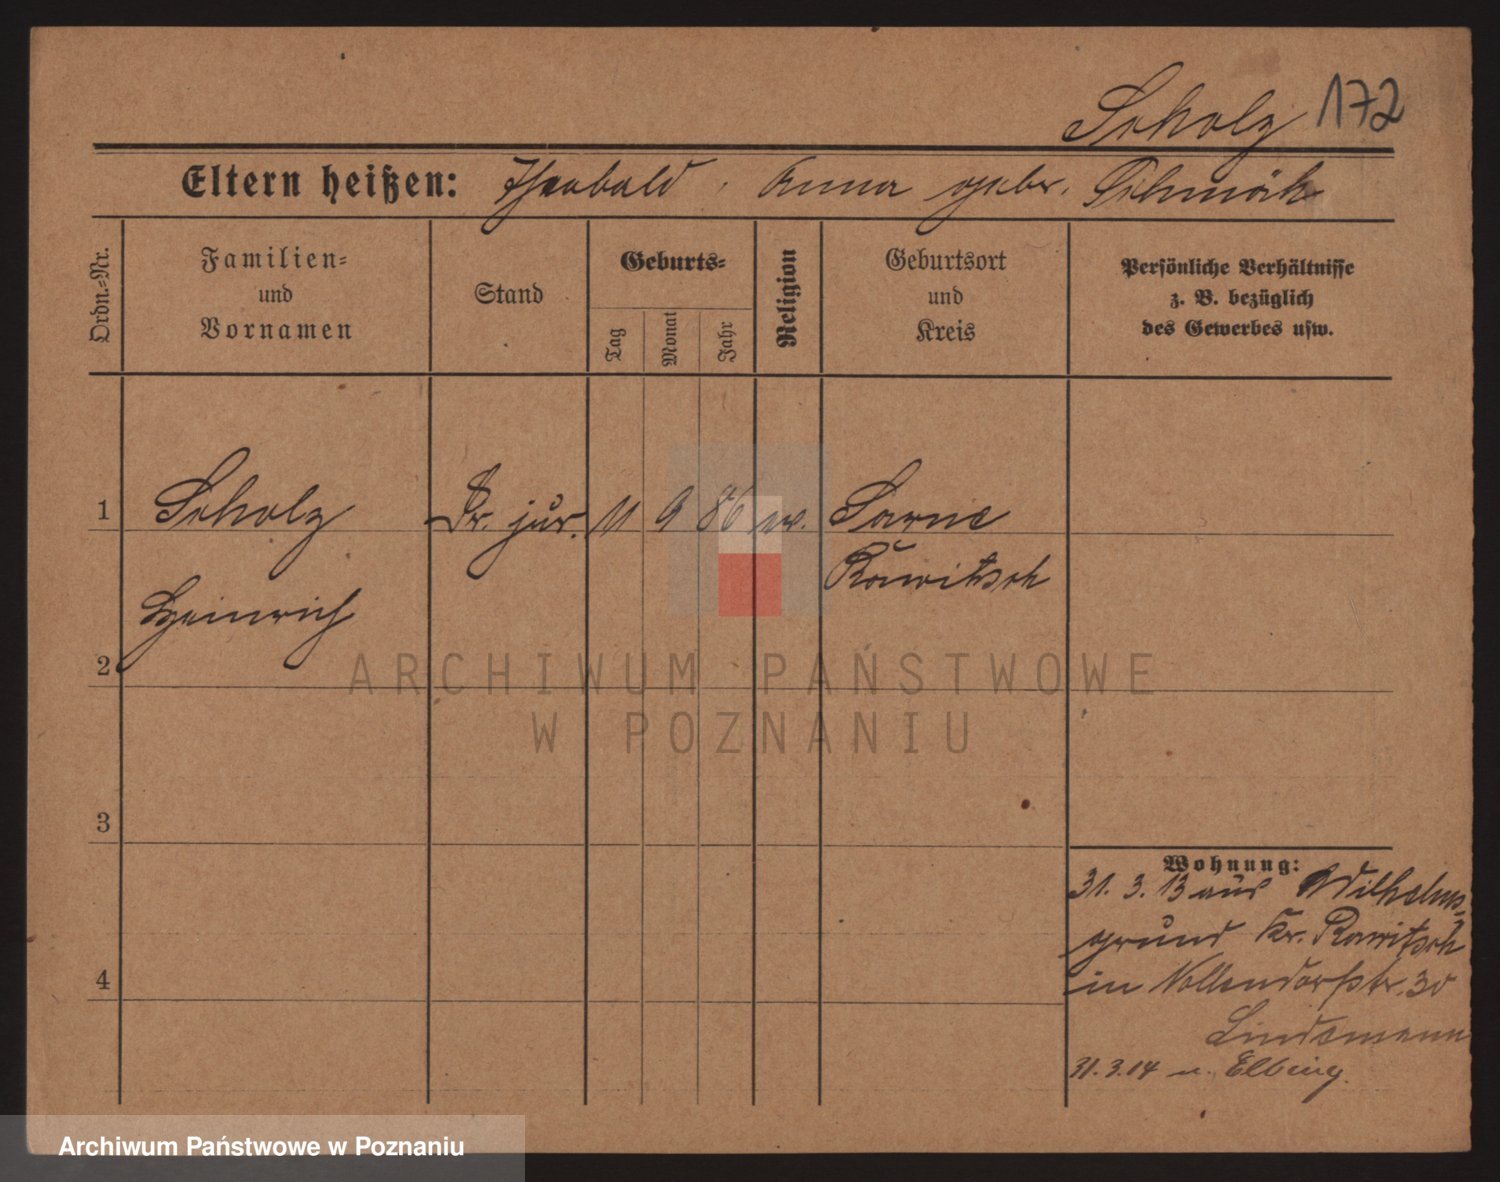 Scholz 172
Eltern heißen: Theobald, Anna gebr. Schmäk
Ordn.-Nr.
Familien-
und
Vornamen
Stand
Geburts-
Tag
Monat
Jahr
Religion
Geburtsort
und
Kreis
Persönliche Verhältnisse
z. B. bezüglich
des Gewerbes usw.
1 Scholz Dr. jur. 11 9 86 ev. Sarne
Rawitsch
Heinrich
2
3
4
Wohnung:
31. 3. 13 aus Wilhelms-
grund Kr. Rawitsch
in Nollendorfstr. 30
Lindemann
31.3.14 n. Elbing.
ARCHIWUM PAŃSTWOWE
W POZNANIU
Archiwum Państwowe w Poznaniu